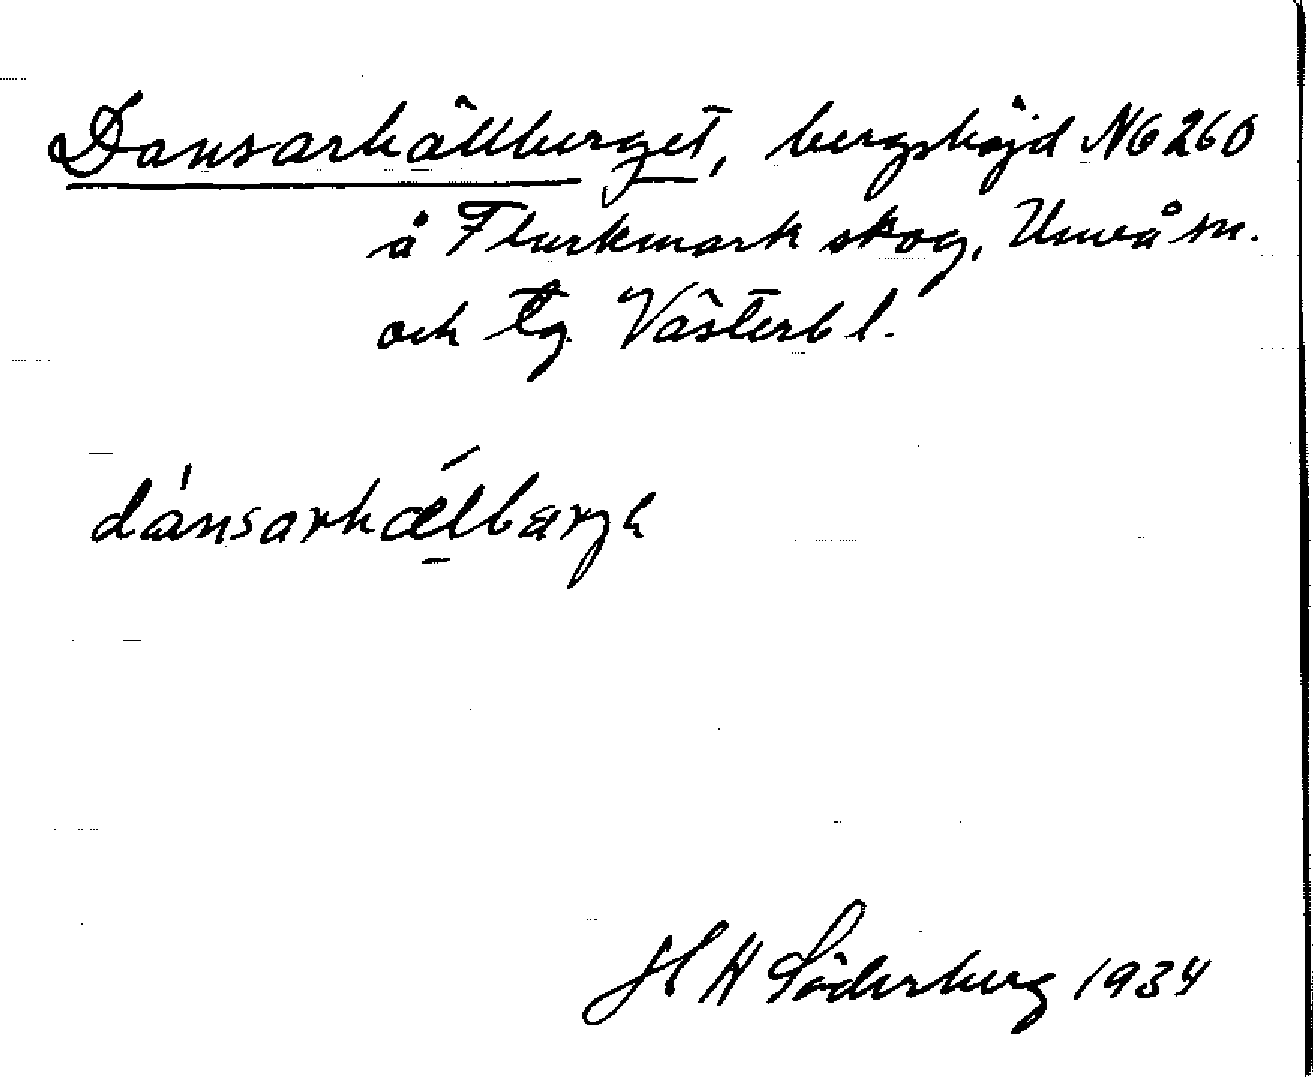 Dansarhällberget, bergshöjd N6260
å Flurkmark skog, Umeå sn.
och tg Västerbl.
dánsarhǽlbärγə
H H Söderberg 1934